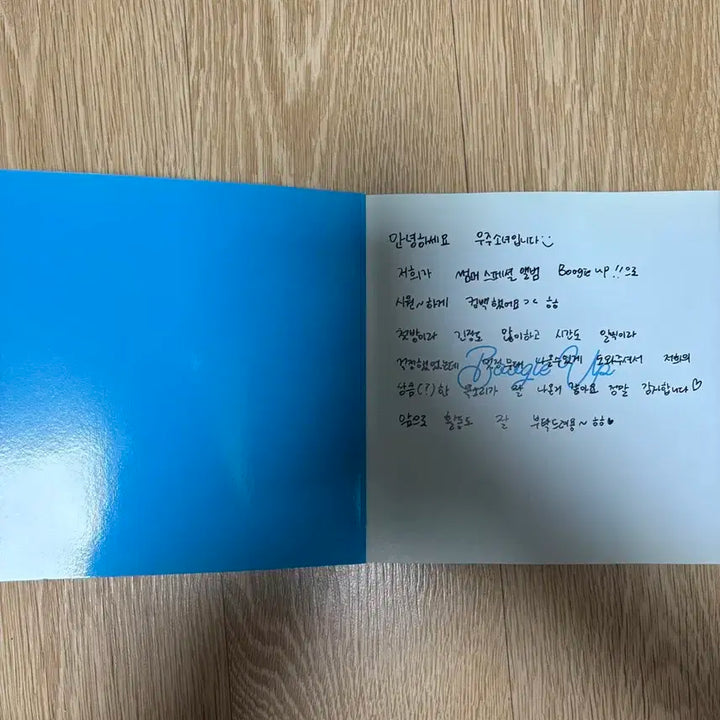 안녕하세요 우주소녀입니다:)
저희가 썸머 스페셜 앨범 Boogie up!!으로
시원~하게 컴백했어요 ㅎㅎ
첫방이라 긴장도 많이하고 시간도 일찍이라
걱정했었는데 나올수있게 도와주셔서 저희의
Boogie Up
상큼(?)한 목소리가 잘 나온거 같아요 정말 감사합니다♡
앞으로 활동도 잘 부탁드려용~ ㅎㅎ♥